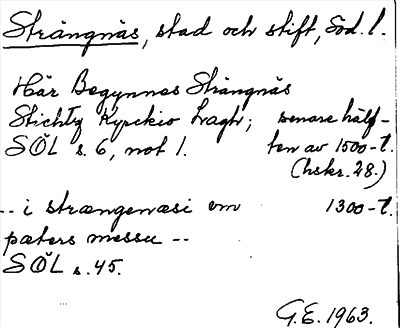 Strängnäs, stad och stift, Söd. l.
Här Begynnes Strängnäs
Stichtz Kyrckio Lagh; senare hälf-
SÖL s. 6, not 1. ten av 1500-t.
(hskr. 28.)
-- i strængenæsi om 1300-t.
pæters messu --
SÖL s. 45.
G.E. 1963.